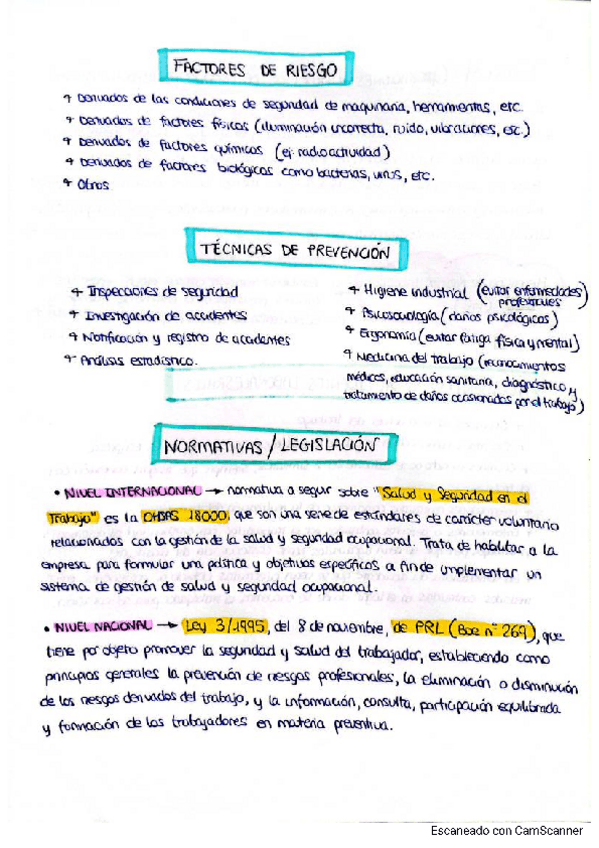 FACTORES DE RIESGO
+ Derivados de las condiciones de seguridad de maquinaria, herramientas, etc.
+ Derivados de factores físicos (iluminación incorrecta, ruido, vibraciones, etc.)
+ Derivados de factores químicos (ej: radioactividad)
+ Derivados de factores biológicos como bacterias, virus, etc.
+ Otros
TÉCNICAS DE PREVENCIÓN
+ Inspecciones de seguridad
+ Investigación de accidentes
+ Notificación y registro de accidentes
+ Análisis estadístico.
+ Higiene industrial (evitar enfermedades
profesionales)
+ Psicosociología (daños psicológicos)
+ Ergonomía (evitar fatiga física y mental)
+ Medicina del trabajo (reconocimientos
médicos, educación sanitaria, diagnóstico y
tratamiento de daños ocasionados por el trabajo)
NORMATIVAS / LEGISLACIÓN
• NIVEL INTERNACIONAL → normativa a seguir sobre "Salud y Seguridad en el
Trabajo" es la OHSAS 18000, que son una serie de estándares de carácter voluntario
relacionados con la gestión de la salud y seguridad ocupacional. Trata de habilitar a la
empresa para formular una política y objetivos específicos a fin de implementar un
sistema de gestión de salud y seguridad ocupacional.
• NIVEL NACIONAL → Ley 3/1995, del 8 de noviembre, de PRL (Boe nº 269), que
tiene por objeto promover la seguridad y salud del trabajador, estableciendo como
principios generales la prevención de riesgos profesionales, la eliminación o disminución
de los riesgos derivados del trabajo, y la información, consulta, participación equilibrada
y formación de los trabajadores en materia preventiva.
Escaneado con CamScanner